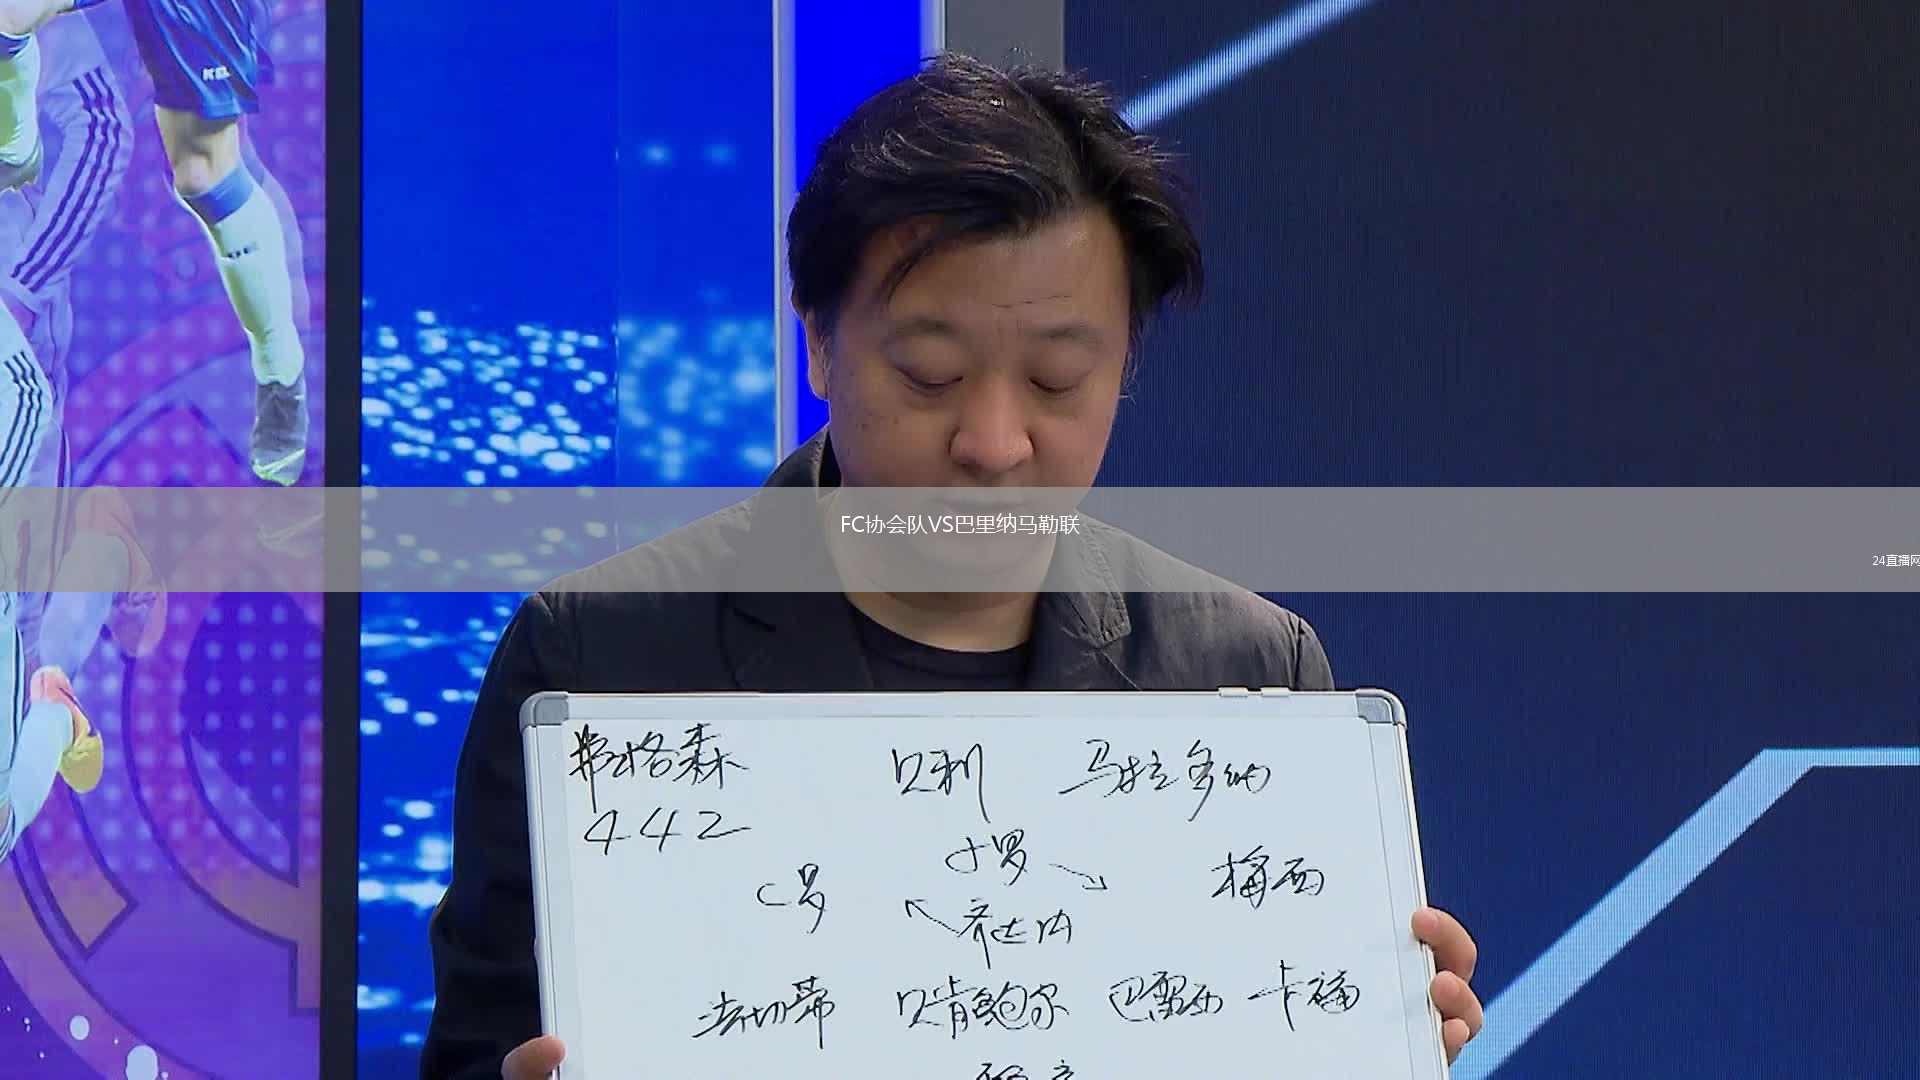 FC协会队VS巴里纳马勒联
24直播网
弗格森 贝利 马拉多纳
442
小罗
C罗 梅西
齐达内
法切蒂 贝肯鲍尔 巴雷西 卡福